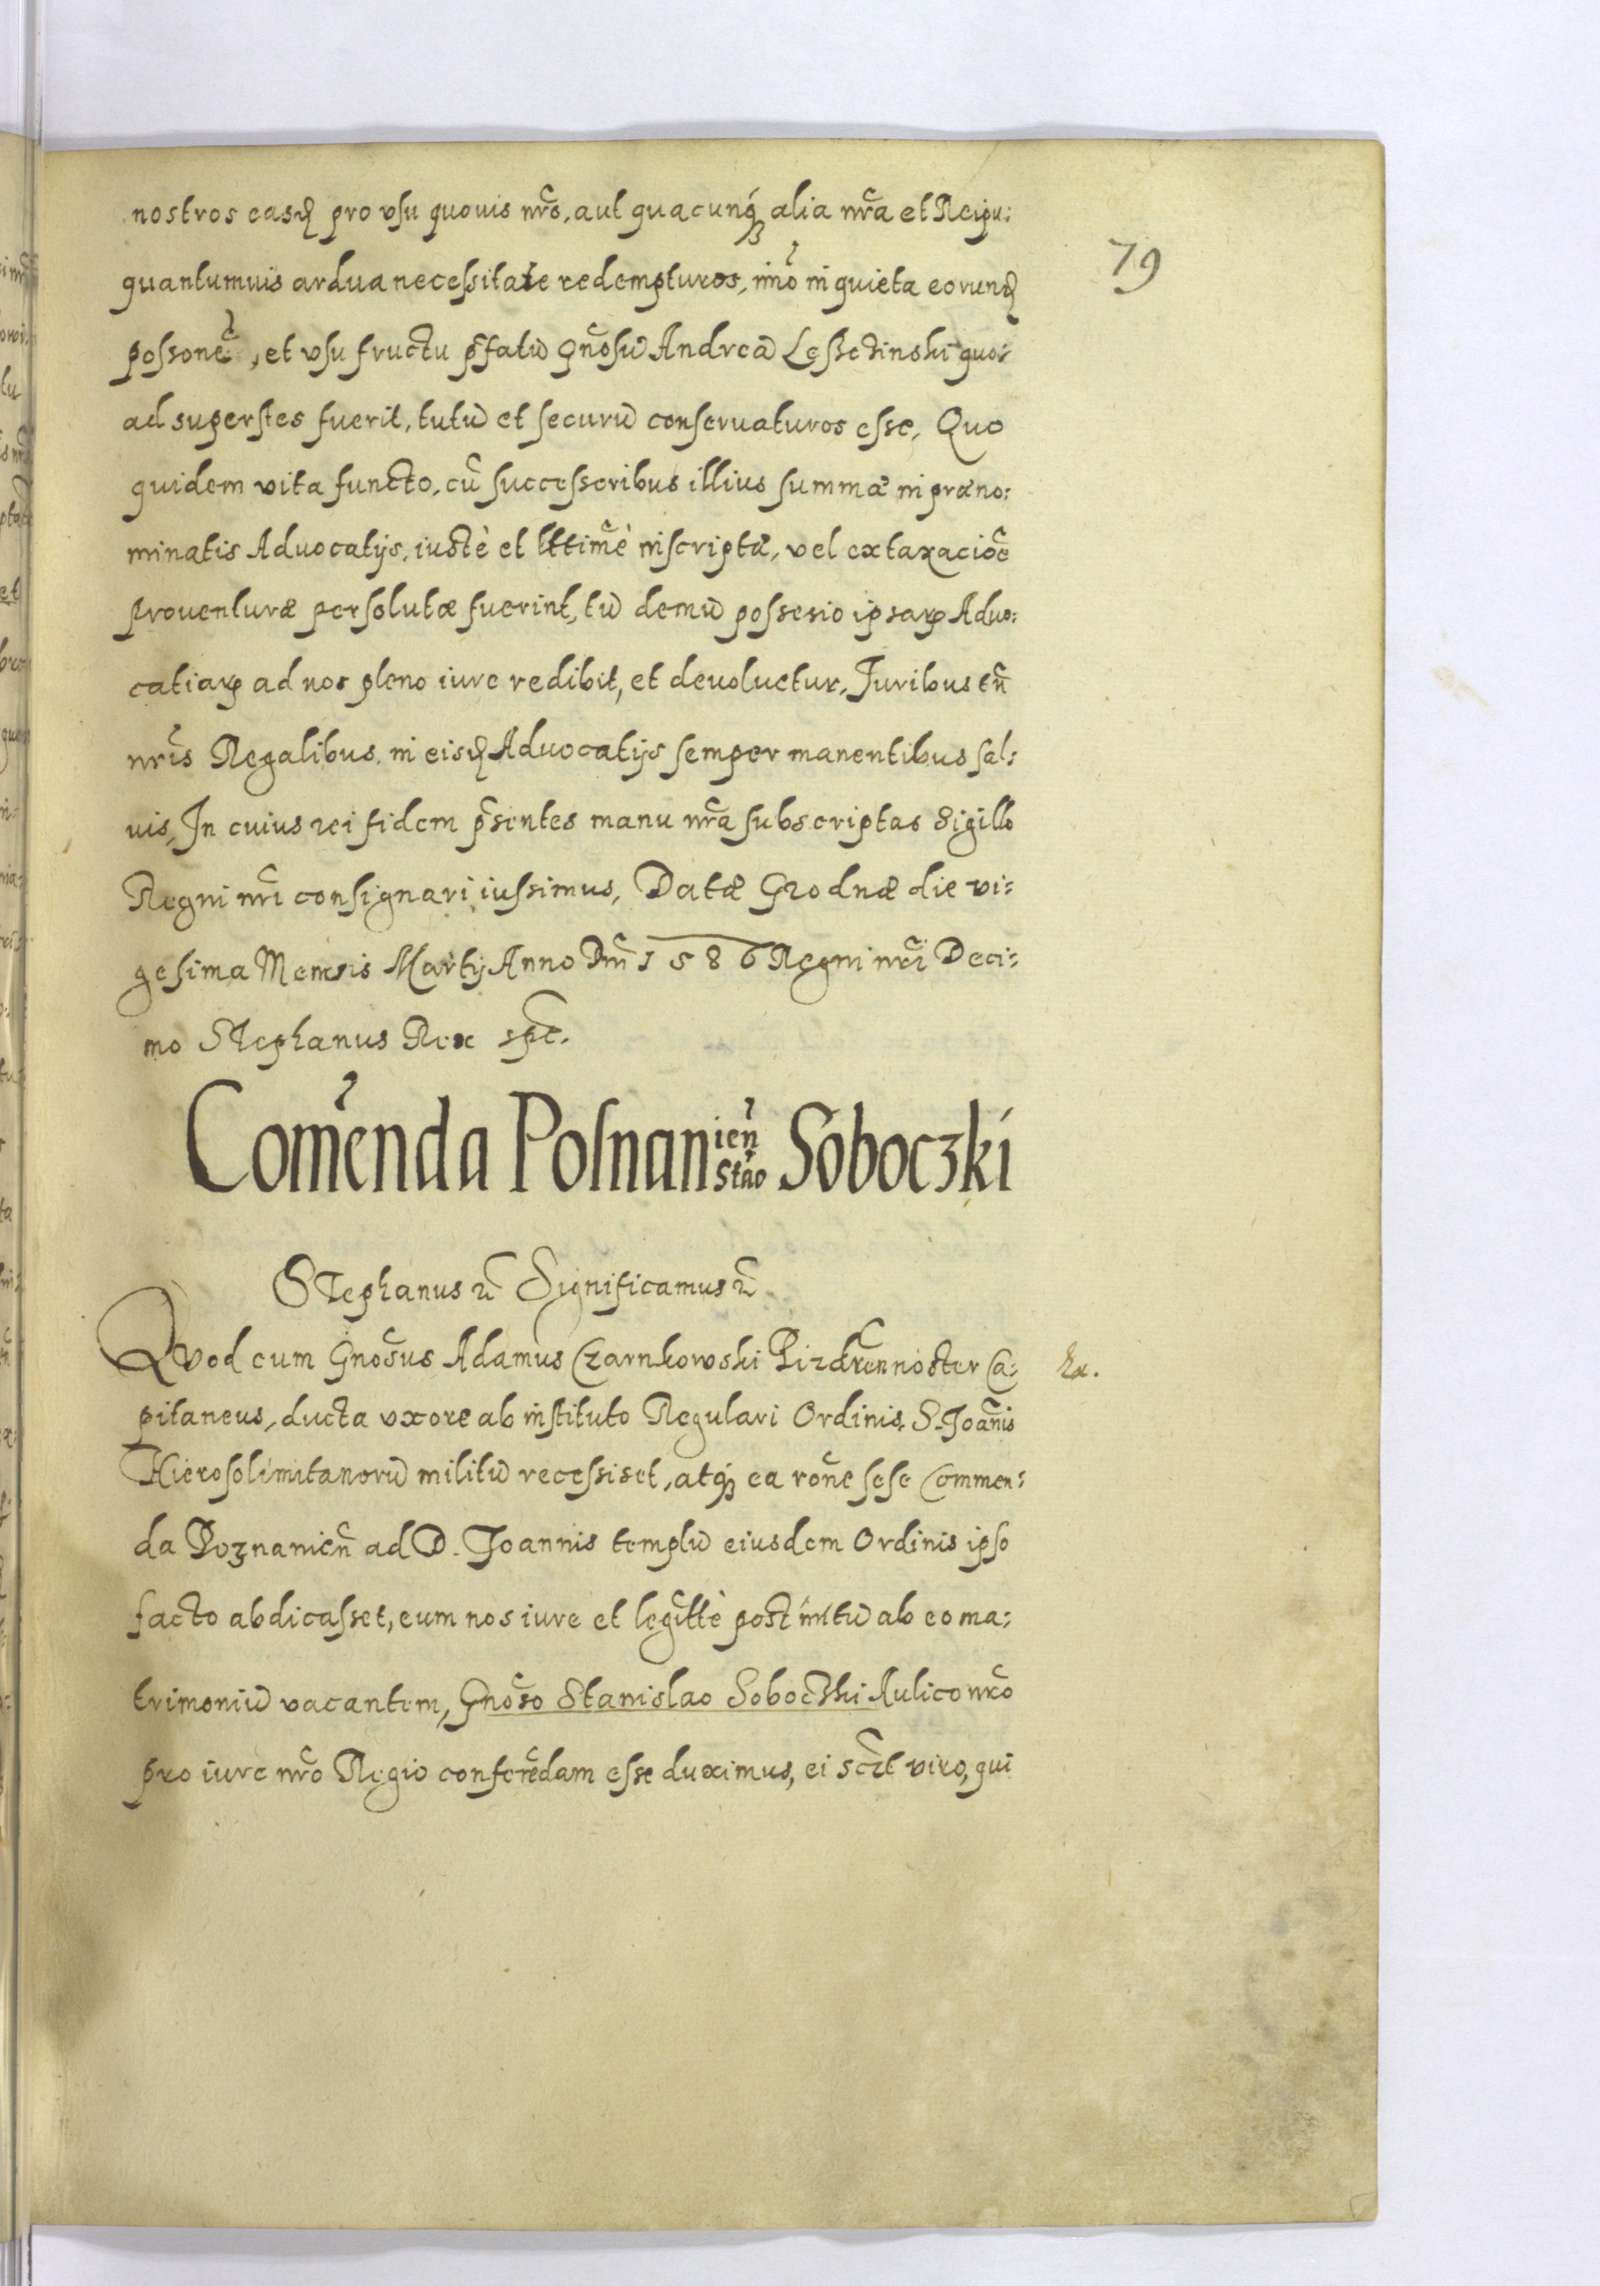 nostros easq pro vsu quouis nro, aut quacunq alia nra et Reipu:
79
quantumuis ardua necessitate redempturos, imo in quieta eorunq
possone, et vsu fructu pfatu Gnosu Andrea Leßczinski quo:
ad superstes fuerit, tutu et securu conseruaturos esse, Quo
quidem vita functo, cu successoribus illius summæ in præno:
minatis Aduocatijs, iustè et lttimè inscriptæ, vel extaxacioe
prouenturæ persolutæ fuerint, tu demu possesio ipsarꝝ Aduo:
catiarꝝ ad nos pleno iure redibit, et deuoluetur, Juribus tn
nris Regalibus in eisq Aduocatijs semper manentibus sal:
uis, In cuius rei fidem psentes manu nra subscriptas Sigillo
Regni nri consignari iussimus, Datæ Grodnæ die vi:
gesima Mensis Martij Anno Dni 1586 Regni nri Deci:
mo Stephanus Rex spt.
Comenda Posnanien Stao Soboczki
Stephanus Significamus
Quod cum Gnosus Adamus Czarnkowski Pizdren noster Ca:
pitaneus, ducta vxore ab instituto Regulari Ordinis S. Joanis
Hierosolimitanoru militu recessiset, atq ea rone sese Commen:
da Poznanien ad D. Joannis templu eiusdem Ordinis ipso
facto abdicasset, eum nos iure et legittè post initu ab eo ma:
trimoniu vacantem, Gnoso Stanislao Soboczki Aulico nro
pro iure nro Regio conferedam esse duximus, ei sczt viro, qui